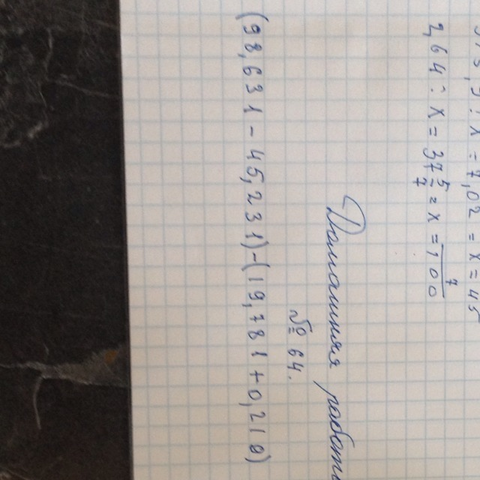 315,9 : x = 7,02 = x = 45
2,64 : x = 37 5/7 = x = 7/100
Домашняя работа
№ 64.
(98,631 - 45,231) - (19,781 + 0,210)